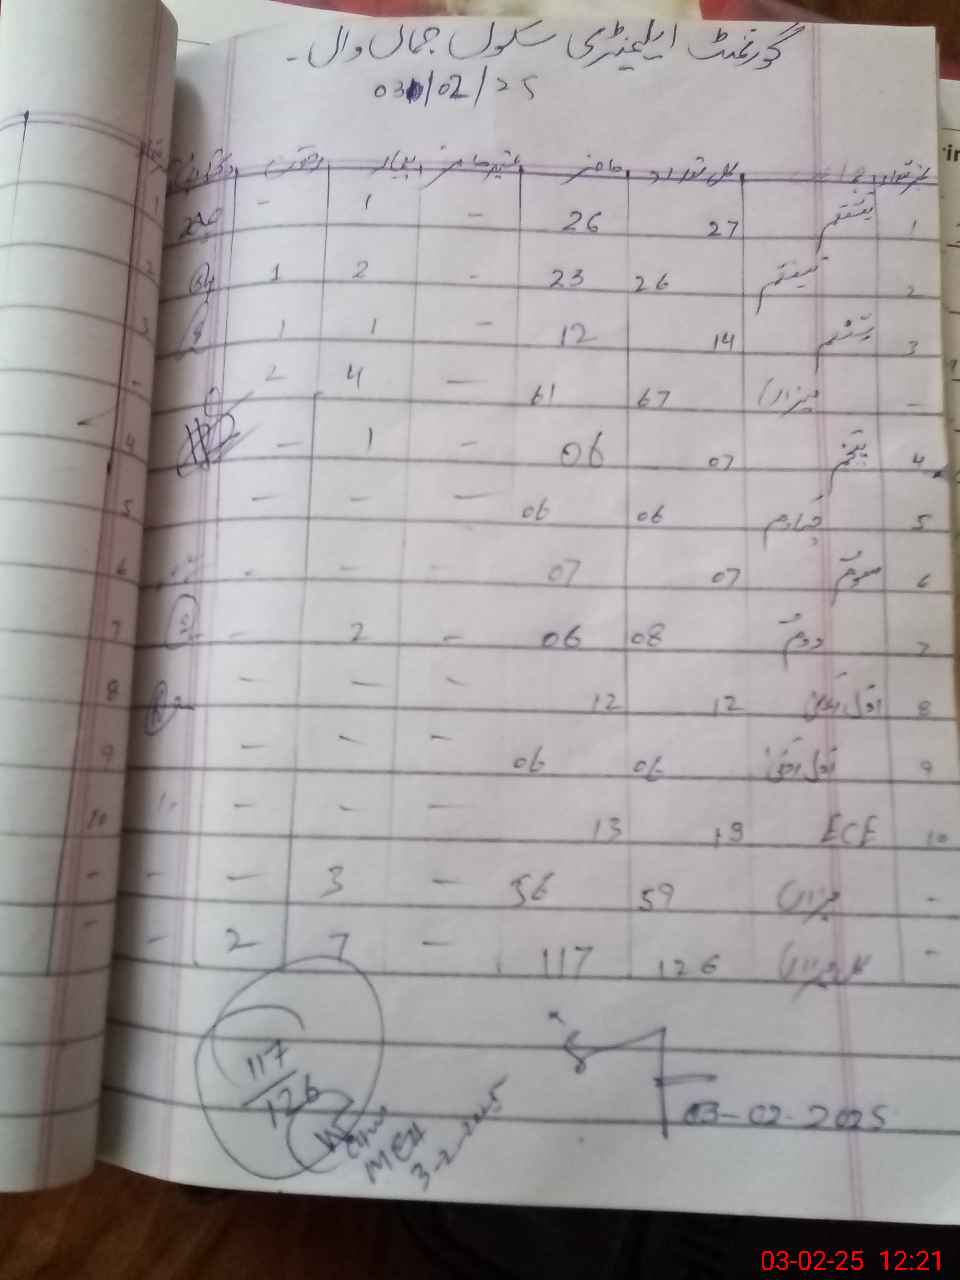 گورنمنٹ ایلیمنٹری سکول جمال وال۔
03/02/25
نمبر شمار کل تعداد حاضر غیر حاضر بیمار رخصت
1 ہشتم 27 26 - 1 -
2 ہفتم 26 23 - 2 1
3 ششم 14 12 - 1 1
- میزان 67 61 - 4 2
4 پنجم 07 06 - 1 -
5 چہارم 06 06 - - -
6 سوئم 07 07 - - -
7 دوئم 08 06 - 2 -
8 اول 12 12 - - -
9 اول 06 06 - - -
10 ECE 19 13 - - -
- میزان 59 56 - 3 - -
- کل میزان 126 117 - 7 2 -
117
126
MEA
3-2-2025
03-02-2025
03-02-25 12:21